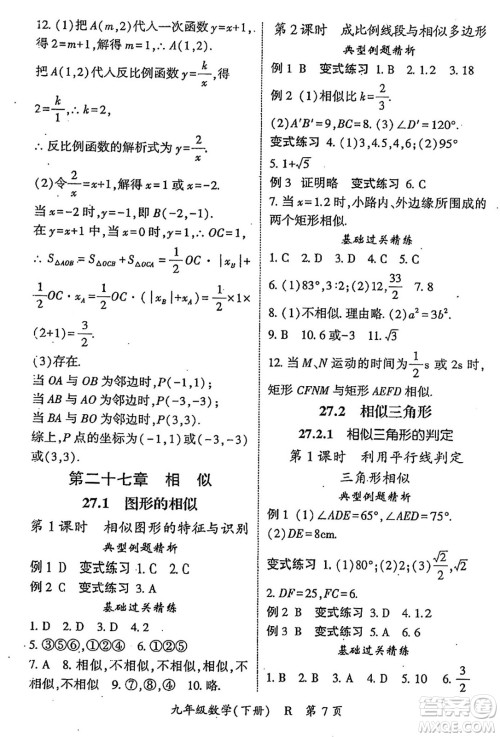 12. 把 A(1,2)代入一次函数 y=x+1,得
2=1+n. 解得 n=1,∴y=x+1.
把 A(1,2)代入反比例函数 y=k/x,得
2=k/1,∴k=2.
∴反比例函数的解析式为 y=2/x.
(2)令2/x=x+1,解得 x=-2 或 x=1.
当 x=-2 时,y=-1,即 B(-2,-1).
当 x=0 时,y=1,即 C(0,1).
∴S△AOB=S△OCB+S△OCA=1/2
OC·|xB|+1/2OC·(|xB|+xA)=1/2×1×
(2+1)=3/2.
(3)存在.
当 OA 与 OB 为邻边时,P(-1,1);
当 AB 与 OB 为邻边时,P(-3,-3);
当 OA 与 AB 为邻边时,P(3,3).
综上,P 点的坐标为(-1,1)或(-3,-3)
或(3,3).
第二十七章 相 似
27.1 图形的相似
第1课时 相似图形的特征与识别
典型例题精析
例1 D 变式练习 1. D 2. C
例2 C 变式练习 3. A
基础过关精练
1. D 2. D 3. A 4. D
5. ③⑤⑥,①②④ 6. ①②⑤
7. 相似,不相似,相似,不相似,不相似,
相似. 8. A 9. C 10. A 11. B
第2课时 成比例线段与相似多边形
典型例题精析
例1 B 变式练习 1. B 2. 1.2 3. 18
例2 (1)相似比 k=2/3.
(2)A′B′=9,BC=8. (3)∠D=120°.
变式练习 4. (1)3,4.5,4,6;(2)95°
5. 1+√5
例3 证明略 变式练习 6. C
7. 当 x=1.5 时,小路内、外边缘所围成的
两个矩形相似.
基础过关精练
1. B 2. D 3. C 4. A 5. A
6. (1)95°,3:2;(2)12,33/2 7. 8
8. (1)不相似.理由略. (2)a²=3b².
9. B 10. 0 11. √3
12. 当 M、N 运动的时间为1/2s 或 2s 时,
矩形 CFNM 与矩形 AEFD 相似.
27.2 相似三角形
27.2.1 相似三角形的判定
第1课时 利用平行线判定
三角形相似
典型例题精析
例1 (1)∠ADE=45°,∠AED=95°.
(2)DE=8cm.
变式练习 1. (1)2;(2)2;(3)√2/2,√2
2. DF=25,FC=6.
例2 B 变式练习 3. D
基础过关精练
1. A 2. C 3. D 4. D 5. 6 6. 3/2
九年级数学(下册) R 第7页